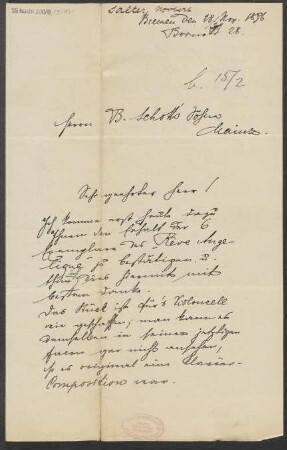 Salter, Norbert
Bremen den 28. Nov. 1896
28.
b. 15/2
Herrn B. Schott's Söhne
Mainz.
Sehr geehrter Herr!
Ich komme erst heute dazu
Ihnen den Erhalt der 6
Exemplare des Rêve Ange-
lique zu bestätigen u.
thue dies hiermit mit
bestem Danke.
Das Stück ist für's Violoncell
wie geschaffen; man kann es
demselben in seiner jetzigen
façon gar nicht ansehen,
daß es original eine Klavier-
Composition war.